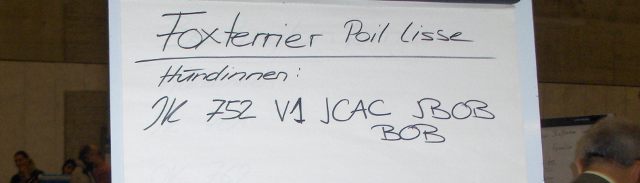 Foxterrier Poil Lisse
Hündinnen:
JK 752 V1 JCAC JBOB
BOB